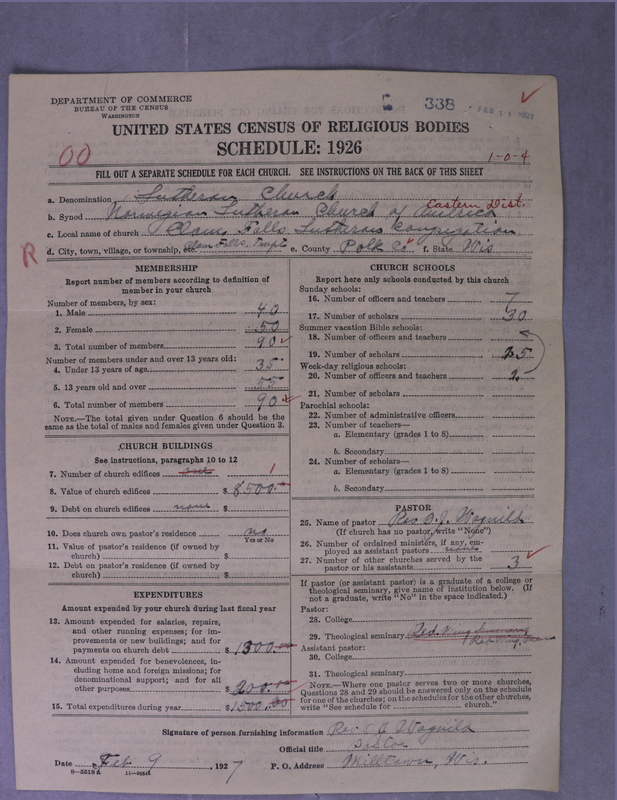 DEPARTMENT OF COMMERCE
BUREAU OF THE CENSUS
WASHINGTON
338
FEB 11 1927
UNITED STATES CENSUS OF RELIGIOUS BODIES
SCHEDULE: 1926
00
1-0-4
FILL OUT A SEPARATE SCHEDULE FOR EACH CHURCH. SEE INSTRUCTIONS ON THE BACK OF THIS SHEET
a. Denomination Lutheran Church
Eastern Dist.
b. Synod Norwegian Lutheran Church of America
c. Local name of church Clam Falls Lutheran Congregation
R
d. City, town, village, or township, etc. Clam Falls, Twpt e. County Polk Co f. State Wis
MEMBERSHIP
Report number of members according to definition of
member in your church
Number of members, by sex:
1. Male 40
2. Female 50
3. Total number of members 90
Number of members under and over 13 years old:
4. Under 13 years of age 35
5. 13 years old and over 55
6. Total number of members 90
NOTE.—The total given under Question 6 should be the
same as the total of males and females given under Question 3.
CHURCH BUILDINGS
See instructions, paragraphs 10 to 12
7. Number of church edifices one 1
8. Value of church edifices $ 8500
9. Debt on church edifices none $
10. Does church own pastor's residence no
Yes or No
11. Value of pastor's residence (if owned by
church) $
12. Debt on pastor's residence (if owned by
church) $
EXPENDITURES
Amount expended by your church during last fiscal year
13. Amount expended for salaries, repairs,
and other running expenses; for im-
provements or new buildings; and for
payments on church debt $ 1300.00
14. Amount expended for benevolences, in-
cluding home and foreign missions; for
denominational support; and for all
other purposes $ 200.00
15. Total expenditures during year $ 1500.00
CHURCH SCHOOLS
Report here only schools conducted by this church
Sunday schools:
16. Number of officers and teachers 7
17. Number of scholars 30
Summer vacation Bible schools:
18. Number of officers and teachers
19. Number of scholars 25
Week-day religious schools:
20. Number of officers and teachers 2
21. Number of scholars
Parochial schools:
22. Number of administrative officers
23. Number of teachers—
a. Elementary (grades 1 to 8)
b. Secondary
24. Number of scholars—
a. Elementary (grades 1 to 8)
b. Secondary
PASTOR
25. Name of pastor Rev. O. J. Wagnild
(If church has no pastor, write "None")
26. Number of ordained ministers, if any, em-
ployed as assistant pastors none
27. Number of other churches served by the
pastor or his assistants 3
If pastor (or assistant pastor) is a graduate of a college or
theological seminary, give name of institution below. (If
not a graduate, write "No" in the space indicated.)
Pastor:
28. College
29. Theological seminary Red Wing Seminary
Red Wing
Assistant pastor:
30. College
31. Theological seminary
NOTE.—Where one pastor serves two or more churches,
Questions 28 and 29 should be answered only on the schedule
for one of the churches; on the schedules for the other churches,
write "See schedule for church."
Signature of person furnishing information Rev. O. J. Wagnild
Official title Pastor
Date Feb 9, 1927 P. O. Address Milltown, Wis.
8-5318 a 11-9054